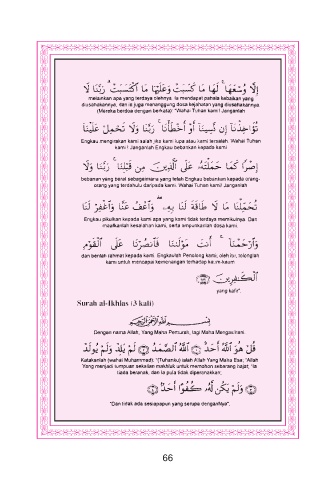 إِلَّا وُسْعَهَا ۚ لَهَا مَا كَسَبَتْ وَعَلَيْهَا مَا ٱكْتَسَبَتْ ۗ رَبَّنَا لَا
melainkan apa yang terdaya olehnya. Ia mendapat pahala kebaikan yang
diusahakannya, dan ia juga menanggung dosa kejahatan yang diusahakannya.
(Mereka berdoa dengan berkata): "Wahai Tuhan kami! Janganlah
تُؤَاخِذْنَآ إِن نَّسِينَآ أَوْ أَخْطَأْنَا ۚ رَبَّنَا وَلَا تَحْمِلْ عَلَيْنَآ
Engkau mengirakan kami salah jika kami lupa atau kami tersalah. Wahai Tuhan
kami! Janganlah Engkau bebankan kepada kami
إِصْرًا كَمَا حَمَلْتَهُۥ عَلَى ٱلَّذِينَ مِن قَبْلِنَا ۚ رَبَّنَا وَلَا
bebanan yang berat sebagaimana yang telah Engkau bebankan kepada orang-
orang yang terdahulu daripada kami. Wahai Tuhan kami! Janganlah
تُحَمِّلْنَا مَا لَا طَاقَةَ لَنَا بِهِۦ ۖ وَٱعْفُ عَنَّا وَٱغْفِرْ لَنَا
Engkau pikulkan kepada kami apa yang kami tidak terdaya memikulnya. Dan
maafkanlah kesalahan kami, serta ampunkanlah dosa kami,
وَٱرْحَمْنَآ ۚ أَنتَ مَوْلَىٰنَا فَٱنصُرْنَا عَلَى ٱلْقَوْمِ
dan berilah rahmat kepada kami. Engkaulah Penolong kami, oleh itu, tolonglah
kami untuk mencapai kemenangan terhadap kaum-kaum
ٱلْكَٰفِرِينَ ﴿٢٨٦﴾
yang kafir".
Surah al-Ikhlas (3 kali)
بِسْمِ ٱللَّهِ ٱلرَّحْمَٰنِ ٱلرَّحِيمِ
Dengan nama Allah, Yang Maha Pemurah, lagi Maha Mengasihani.
قُلْ هُوَ ٱللَّهُ أَحَدٌ ﴿١﴾ ٱللَّهُ ٱلصَّمَدُ ﴿٢﴾ لَمْ يَلِدْ وَلَمْ يُولَدْ
Katakanlah (wahai Muhammad): "(Tuhanku) ialah Allah Yang Maha Esa; "Allah
Yang menjadi tumpuan sekalian makhluk untuk memohon sebarang hajat; "Ia
tiada beranak, dan Ia pula tidak diperanakkan;
﴿٣﴾ وَلَمْ يَكُن لَّهُۥ كُفُوًا أَحَدٌۢ ﴿٤﴾
"Dan tidak ada sesiapapun yang serupa denganNya".
66